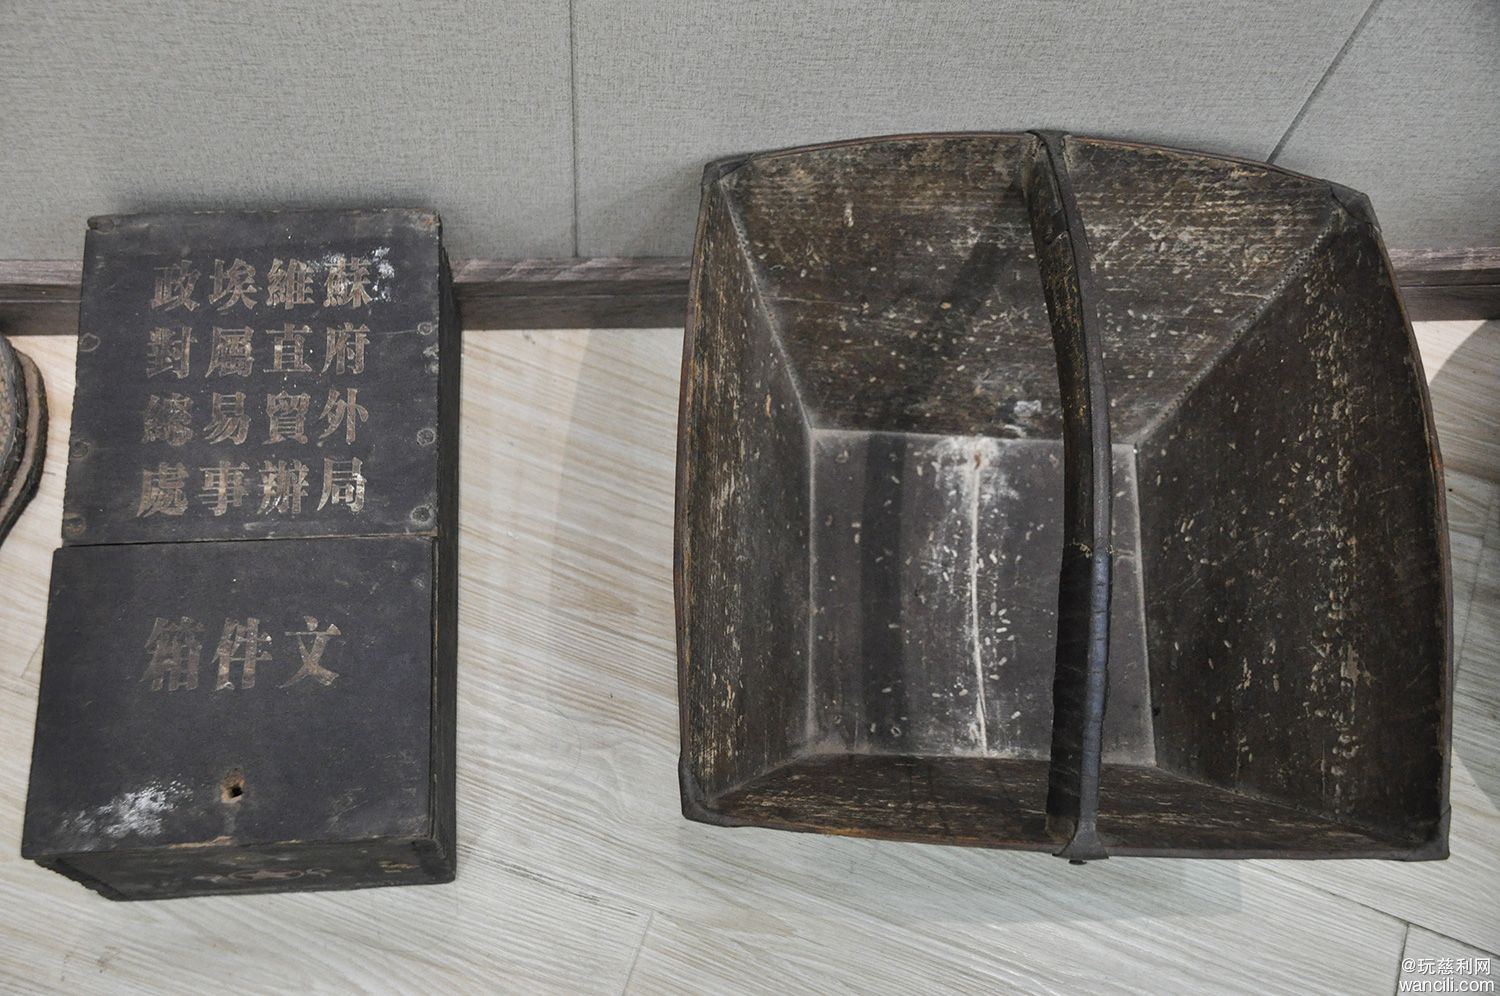 蘇維埃政
府直屬對
外貿易總
局辦事處
文件箱
@玩慈利网
wancili.com